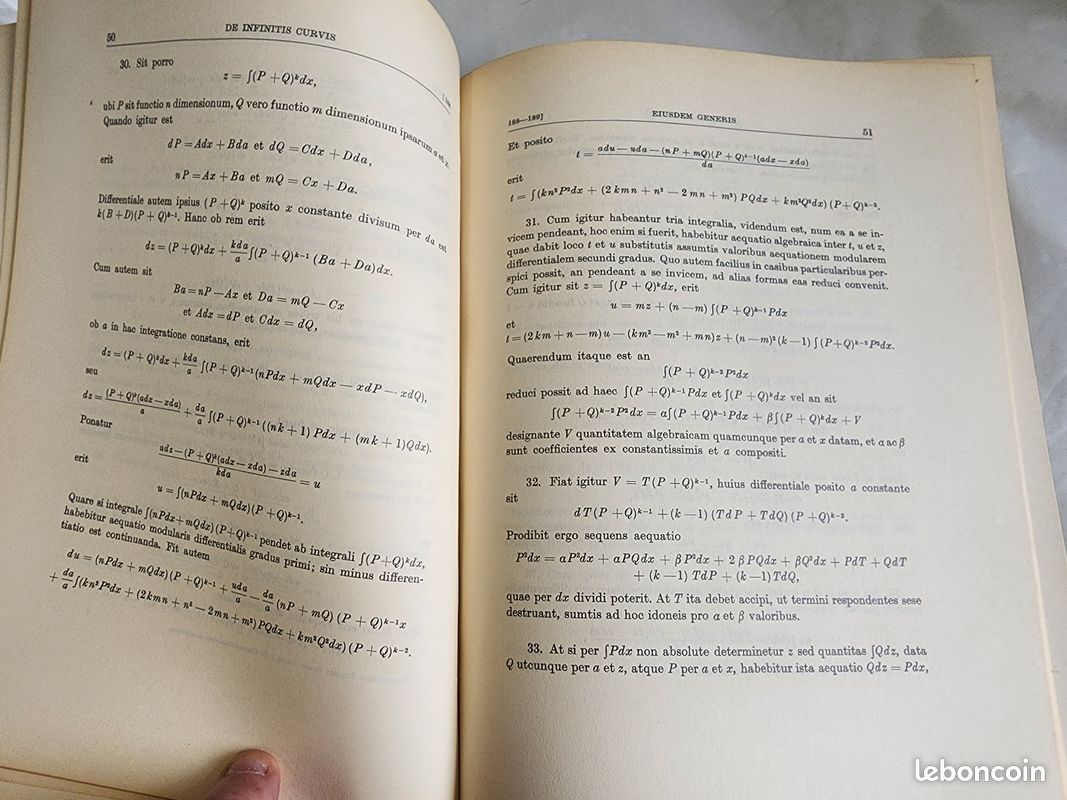 50
DE INFINITIS CURVIS
30. Sit porro
z = ∫(P + Q)ᵏdx,
ubi P sit functio n dimensionum, Q vero functio m dimensionum ipsarum a et x.
Quando igitur est
dP = Adx + Bda et dQ = Cdx + Dda,
erit
nP = Ax + Ba et mQ = Cx + Da.
Differentiale autem ipsius (P + Q)ᵏ posito x constante divisum per da est
k(B + D)(P + Q)ᵏ⁻¹. Hanc ob rem erit
dz = (P + Q)ᵏdx + kda/a ∫(P + Q)ᵏ⁻¹ (Ba + Da)dx.
Cum autem sit
Ba = nP — Ax et Da = mQ — Cx
et Adx = dP et Cdx = dQ,
ob a in hac integratione constans, erit
dz = (P + Q)ᵏdx + kda/a ∫(P + Q)ᵏ⁻¹(nPdx + mQdx — xdP — xdQ),
seu
dz = (P + Q)ᵏ(adx — xda)/a + da/a ∫(P + Q)ᵏ⁻¹((nk + 1) Pdx + (mk + 1)Qdx).
Ponatur
adz — (P + Q)ᵏ(adx — xda) — zda/kda = u
erit
u = ∫(nPdx + mQdx)(P + Q)ᵏ⁻¹.
Quare si integrale ∫(nPdx + mQdx)(P + Q)ᵏ⁻¹ pendet ab integrali ∫(P + Q)ᵏdx,
habebitur aequatio modularis differentialis gradus primi; sin minus differen-
tiatio est continuanda. Fit autem
du = (nPdx + mQdx)(P + Q)ᵏ⁻¹ + uda/a — da/a (nP + mQ)(P + Q)ᵏ⁻¹x
+ da/a ∫(kn²P²dx + (2kmn + n² — 2mn + m²)PQdx + km²Q²dx)(P + Q)ᵏ⁻².
188—189]
EIUSDEM GENERIS
51
Et posito
t = adu — uda — (nP + mQ)(P + Q)ᵏ⁻¹(adx — xda)/da
erit
t = ∫(kn²P²dx + (2kmn + n² — 2mn + m²) PQdx + km²Q²dx)(P + Q)ᵏ⁻².
31. Cum igitur habeantur tria integralia, videndum est, num ea a se in-
vicem pendeant, hoc enim si fuerit, habebitur aequatio algebraica inter t, u et z,
quae dabit loco t et u substitutis assumtis valoribus aequationem modularem
differentialem secundi gradus. Quo autem facilius in casibus particularibus per-
spici possit, an pendeant a se invicem, ad alias formas eas reduci convenit.
Cum igitur sit z = ∫(P + Q)ᵏdx, erit
u = mz + (n — m) ∫(P + Q)ᵏ⁻¹Pdx
et
t = (2km + n — m)u — (km² — m² + mn)z + (n — m)²(k — 1) ∫(P + Q)ᵏ⁻²P²dx.
Quaerendum itaque est an
∫(P + Q)ᵏ⁻²P²dx
reduci possit ad haec ∫(P + Q)ᵏ⁻¹Pdx et ∫(P + Q)ᵏdx vel an sit
∫(P + Q)ᵏ⁻²P²dx = α∫(P + Q)ᵏ⁻¹Pdx + β∫(P + Q)ᵏdx + V
designante V quantitatem algebraicam quamcunque per a et x datam, et α ac β
sunt coefficientes ex constantissimis et a compositi.
32. Fiat igitur V = T(P + Q)ᵏ⁻¹, huius differentiale posito a constante
sit
dT(P + Q)ᵏ⁻¹ + (k — 1)(TdP + TdQ)(P + Q)ᵏ⁻².
Prodibit ergo sequens aequatio
P²dx = αP²dx + αPQdx + βP²dx + 2βPQdx + βQ²dx + PdT + QdT
+ (k — 1) TdP + (k — 1) TdQ,
quae per dx dividi poterit. At T ita debet accipi, ut termini respondentes sese
destruant, sumtis ad hoc idoneis pro α et β valoribus.
33. At si per ∫Pdx non absolute determinetur z sed quantitas ∫Qdz, data
Q utcunque per a et z, atque P per a et x, habebitur ista aequatio Qdz = Pdx,
leboncoin